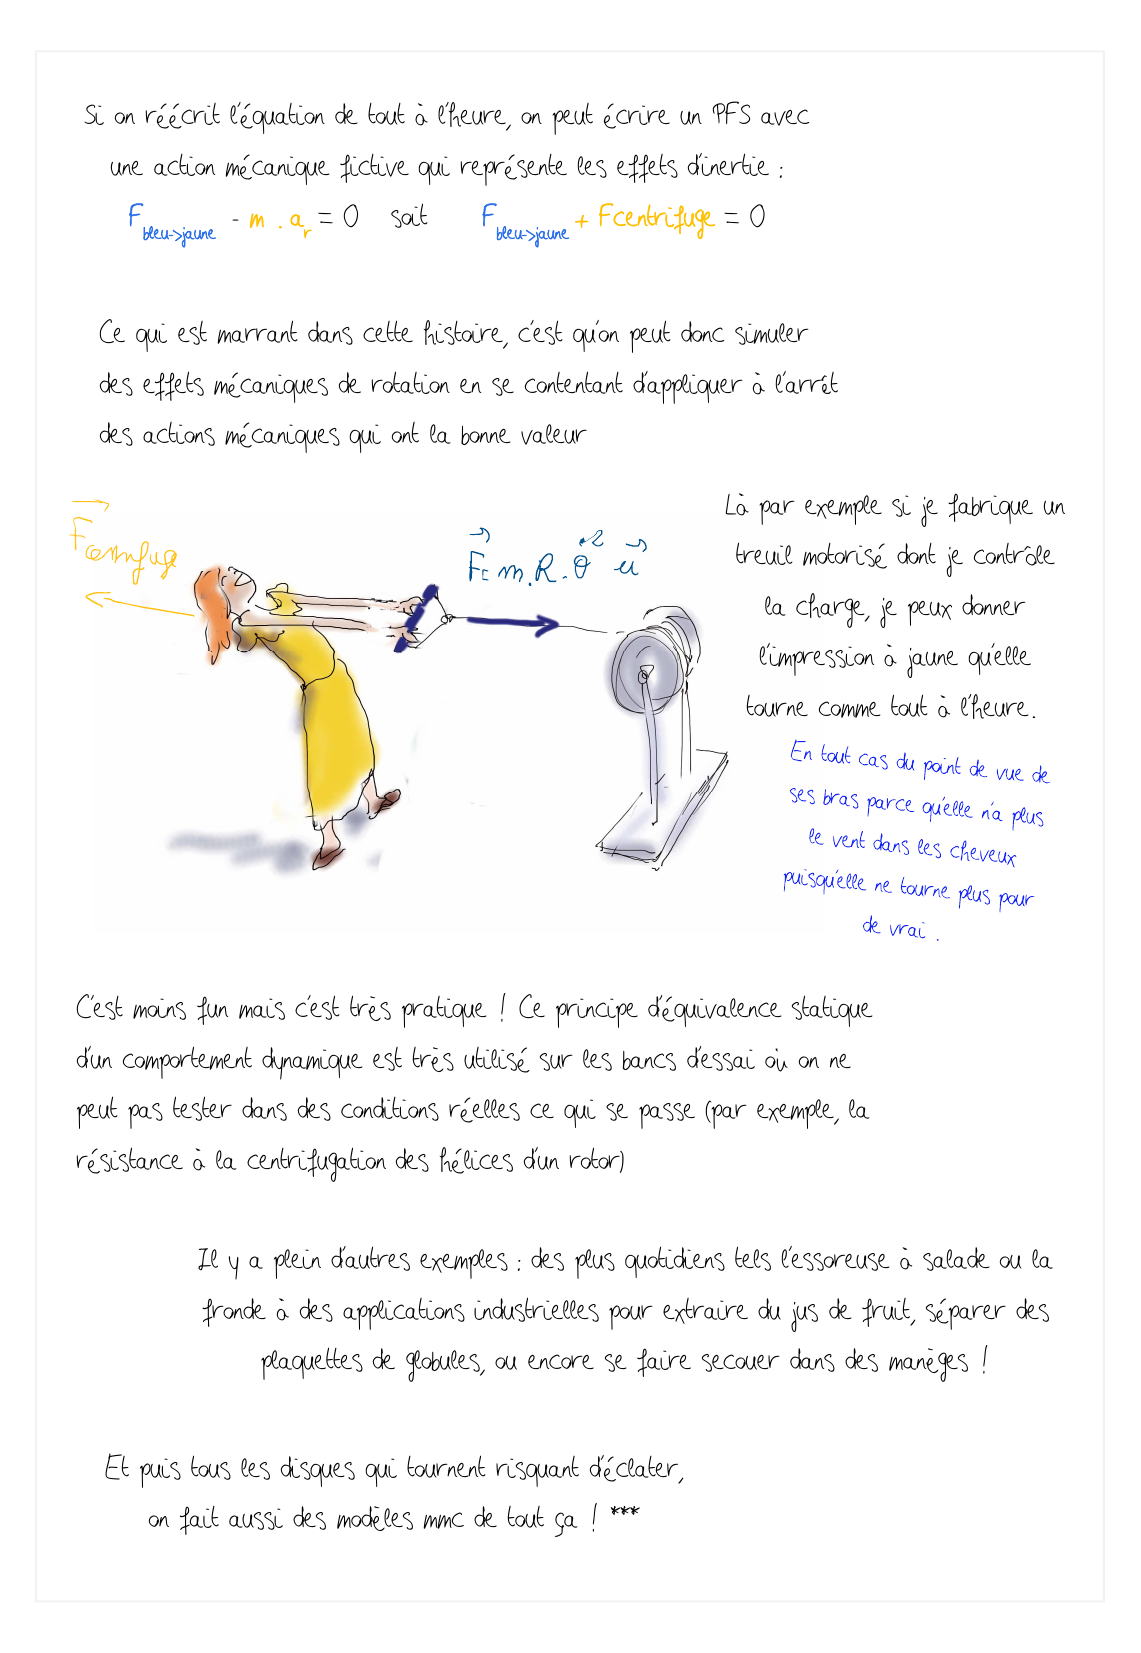 Si on réécrit l'équation de tout à l'heure, on peut écrire un PFS avec
une action mécanique fictive qui représente les effets d'inertie :
F bleu->jaune - m . a r = 0 soit F bleu->jaune + Fcentrifuge = 0
Ce qui est marrant dans cette histoire, c'est qu'on peut donc simuler
des effets mécaniques de rotation en se contentant d'appliquer à l'arrêt
des actions mécaniques qui ont la bonne valeur
Là par exemple si je fabrique un
treuil motorisé dont je contrôle
la charge, je peux donner
l'impression à jaune qu'elle
tourne comme tout à l'heure.
F= m.R.θ̇² u
En tout cas du point de vue de
ses bras parce qu'elle n'a plus
le vent dans les cheveux
puisqu'elle ne tourne plus pour
de vrai .
C'est moins fun mais c'est très pratique ! Ce principe d'équivalence statique
d'un comportement dynamique est très utilisé sur les bancs d'essai où on ne
peut pas tester dans des conditions réelles ce qui se passe (par exemple, la
résistance à la centrifugation des hélices d'un rotor)
Il y a plein d'autres exemples : des plus quotidiens tels l'essoreuse à salade ou la
fronde à des applications industrielles pour extraire du jus de fruit, séparer des
plaquettes de globules, ou encore se faire secouer dans des manèges !
Et puis tous les disques qui tournent risquant d'éclater,
on fait aussi des modèles mmc de tout ça ! ***